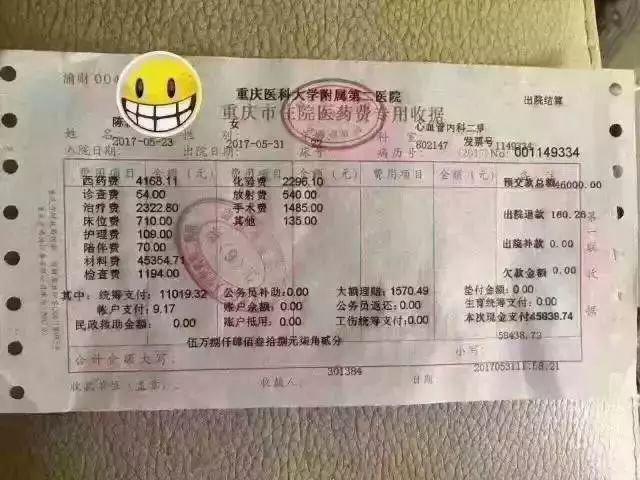 渝财 004
重庆医科大学附属第二医院 出院结算
重庆市住院医药费专用收据
陈 女 心血管内科二单
姓名 性别 科室 602147 发票号 1149334
入院日期: 2017-05-23 出院日期: 2017-05-31 床号 27 病历号: (2017)No: 001149334
费用项目 金额(元) 费用项目 金额(元) 费用项目 金额(元) 预交款总额46000.00
西药费 4168.11 化验费 2296.10
诊查费 54.00 放射费 540.00
治疗费 2322.80 手术费 1485.00 出院退款 160.26
床位费 710.00 其他 135.00
护理费 109.00 出院补款 0.00
陪伴费 70.00
材料费 45354.71
检查费 1194.00 欠款金额 0.00
其中: 统筹支付: 11019.32 公务员补助: 0.00 大额理赔: 1570.49 垫付金额: 0.00
帐户支付: 9.17 账户余额: 0.00 公务员返还: 0.00 生育统筹支付: 0.00
民政救助金额: 0.00 账户抵用: 0.00 工伤统筹支付: 0.00 本次现金支付: 45838.74
伍万捌仟肆佰叁拾捌元柒角贰分 58438.72
合计金额大写: 小写:
301384 2017053111:58:21
收款单位(盖章): 收款人: 日期
第一联 收据